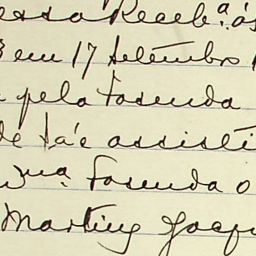 essa Receb.ª ós
em 17 Setembro
pela Fasenda
de lá e assisti
Fasenda o
Martins Joaq